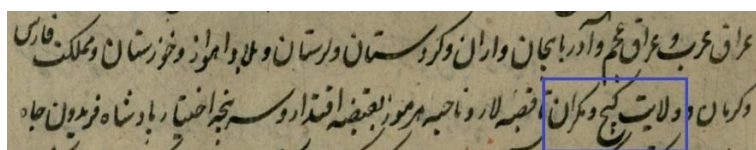 عراق عرب و عراق عجم و آذربایجان و اران و کردستان و لرستان و بلاد اهواز و خوزستان و مملکت فارس
و کرمان و ولایت کیج و مکران تا قصبه لار و ناحیه هرموز بقبضه اقتدار و سرپنجه اختیار پادشاه فریدون جاه